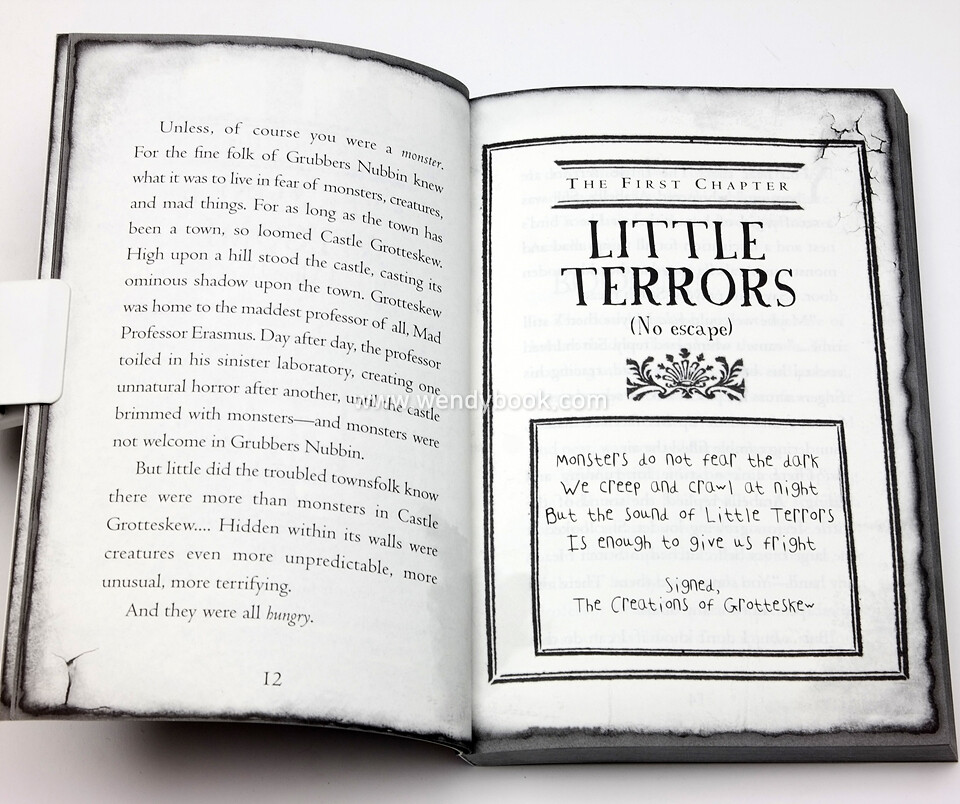 Unless, of course you were a monster.
For the fine folk of Grubbers Nubbin knew
what it was to live in fear of monsters, creatures,
and mad things. For as long as the town has
been a town, so loomed Castle Grotteskew.
High upon a hill stood the castle, casting its
ominous shadow upon the town. Grotteskew
was home to the maddest professor of all, Mad
Professor Erasmus. Day after day, the professor
toiled in his sinister laboratory, creating one
unnatural horror after another, until the castle
brimmed with monsters—and monsters were
not welcome in Grubbers Nubbin.
But little did the troubled townsfolk know
there were more than monsters in Castle
Grotteskew.... Hidden within its walls were
creatures even more unpredictable, more
unusual, more terrifying.
And they were all hungry.
12
The First Chapter
LITTLE
TERRORS
(No escape)
Monsters do not fear the dark
We creep and crawl at night
But the sound of Little Terrors
Is enough to give us fright
Signed,
The Creations of Grotteskew
www.wendybook.com